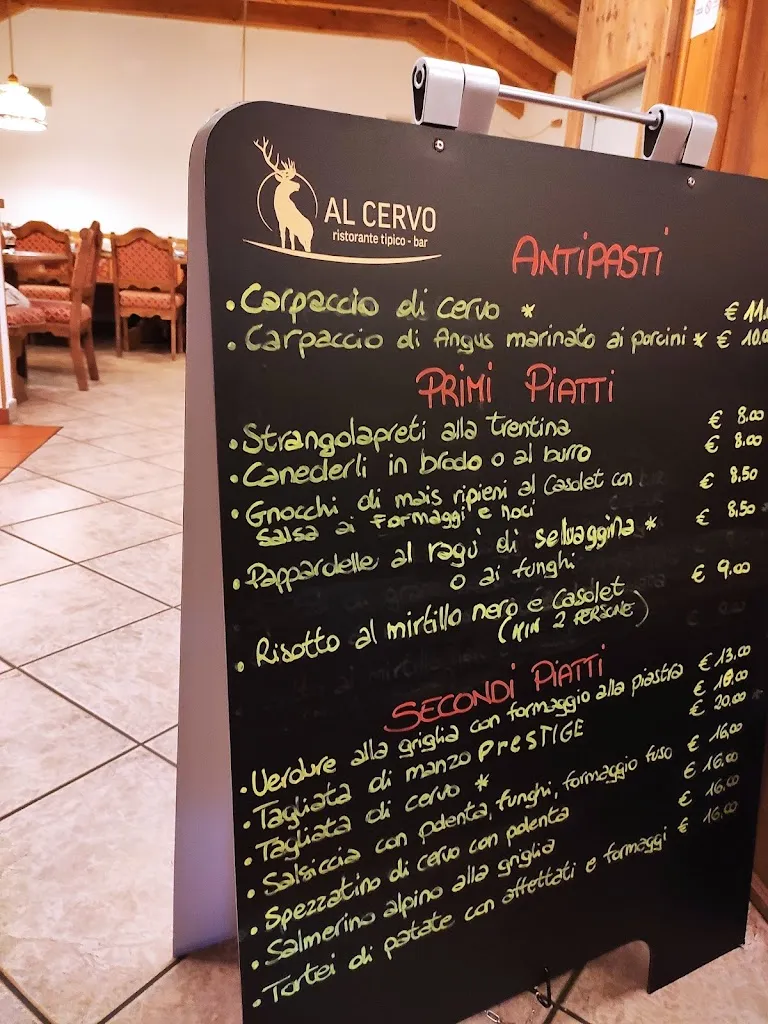 AL CERVO
ristorante tipico - bar
ANTIPASTI
• Carpaccio di cervo * € 11.0
• Carpaccio di Angus marinato ai porcini * € 10.0
PRIMI PIATTI
• Strangolapreti alla trentina € 8.00
• Canederli in brodo o al burro € 8.00
• Gnocchi di mais ripieni al Casolet con € 8,50
salsa ai formaggi e noci
• Pappardelle al ragù di selvaggina * € 8,50
o ai funghi
• Risotto al mirtillo nero e casolet € 9.00
(MIN 2 PERSONE)
SECONDI PIATTI
• Verdure alla griglia con formaggio alla piastra € 13,00
• Tagliata di manzo PRESTIGE € 18.00
• Tagliata di cervo * € 20.00
• Salsiccia con polenta, funghi, formaggio fuso € 16,00
• Spezzatino di cervo con polenta € 16.00
• Salmerino alpino alla griglia € 16.00
• Tortei di patate con affettati e formaggi € 16.00